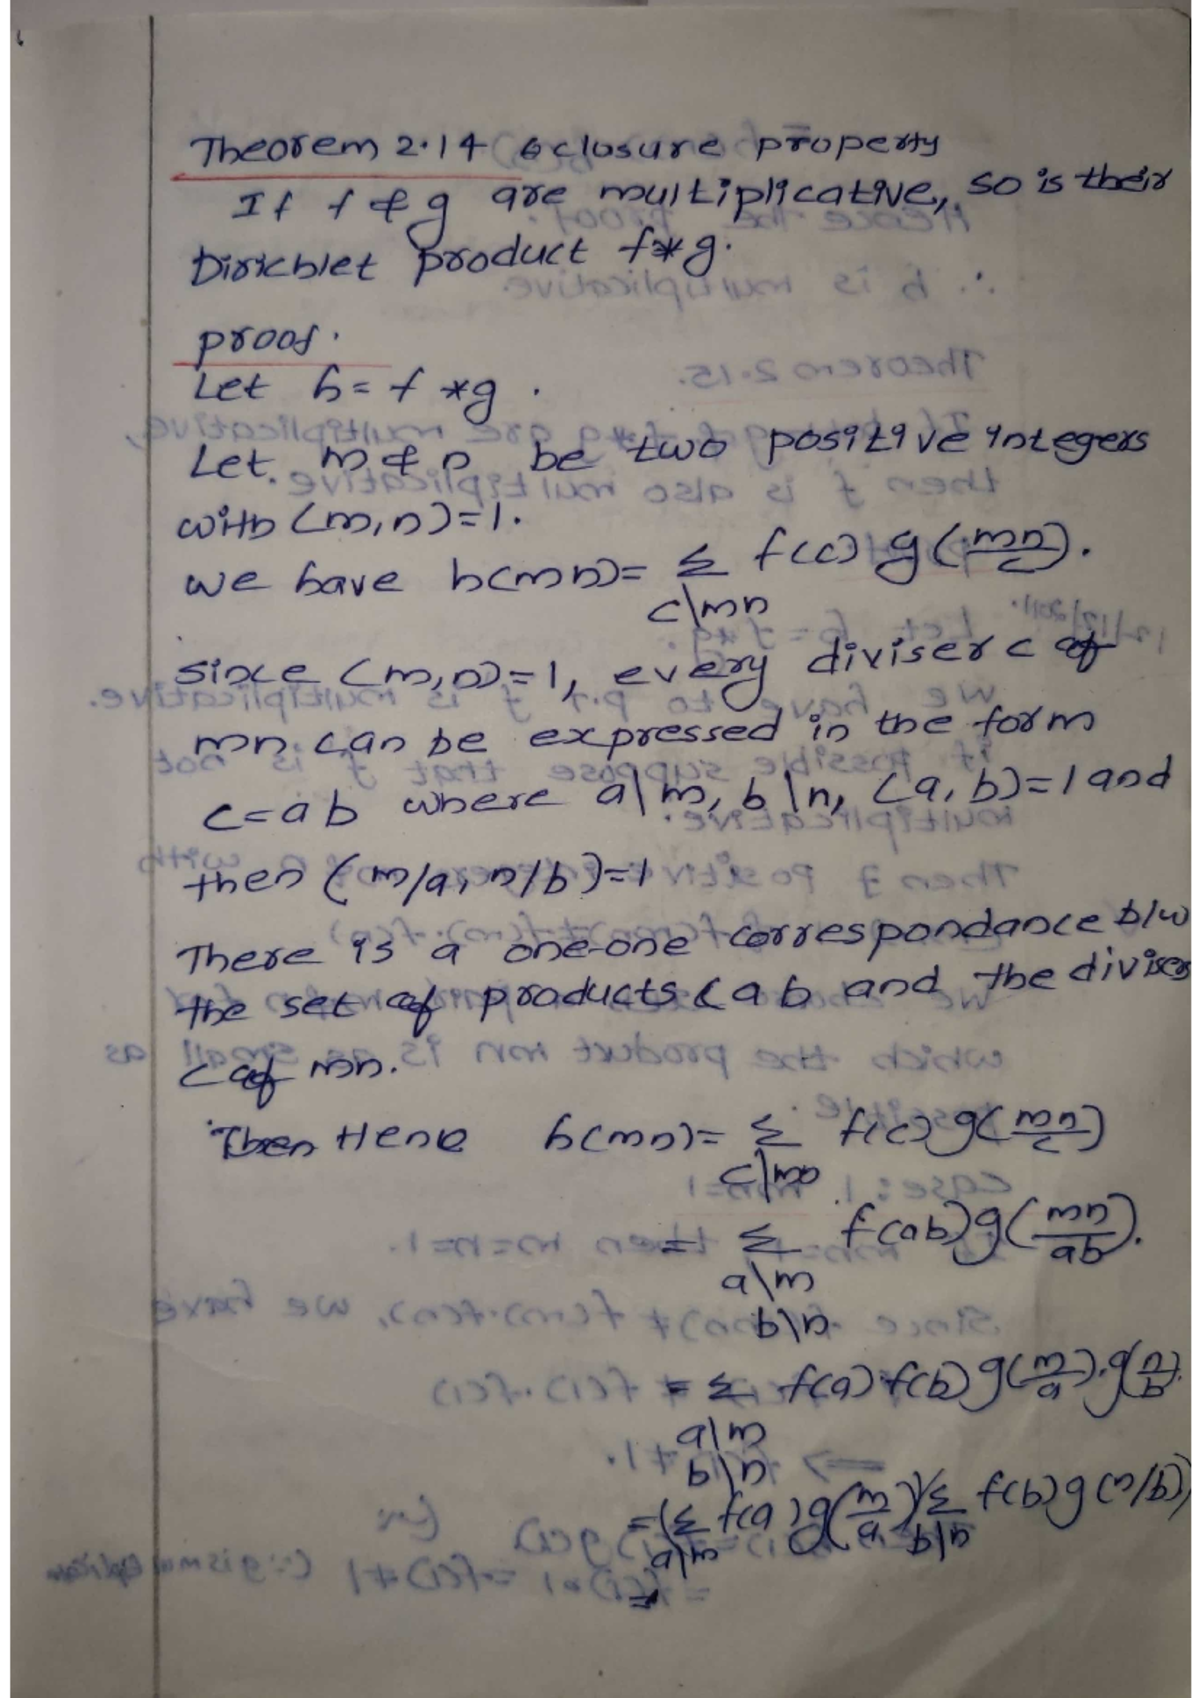 Theorem 2.14 closure property
If f & g are multiplicative, so is their
Dirichlet product f*g.
proof.
Let h = f * g .
Let m & n be two positive integers
with (m,n)=1.
we have h(mn)= Σ f(c) g(mn/c).
c\mn
since (m,n)=1, every diviser c of
mn can be expressed in the form
c=ab where a\m, b\n, (a,b)=1 and
then (m/a, n/b)=1
There is a one-one correspondance b/w
the set of products ab and the divisers
c of mn.
Then Hence h(mn)= Σ f(c) g(mn/c)
c\mn
= Σ f(ab) g(mn/ab).
a\m
b\n
= Σ f(a) f(b) g(m/a).g(n/b).
a\m
b\n
=(Σ f(a) g(m/a))(Σ f(b) g(n/b))
a\m b\n
=